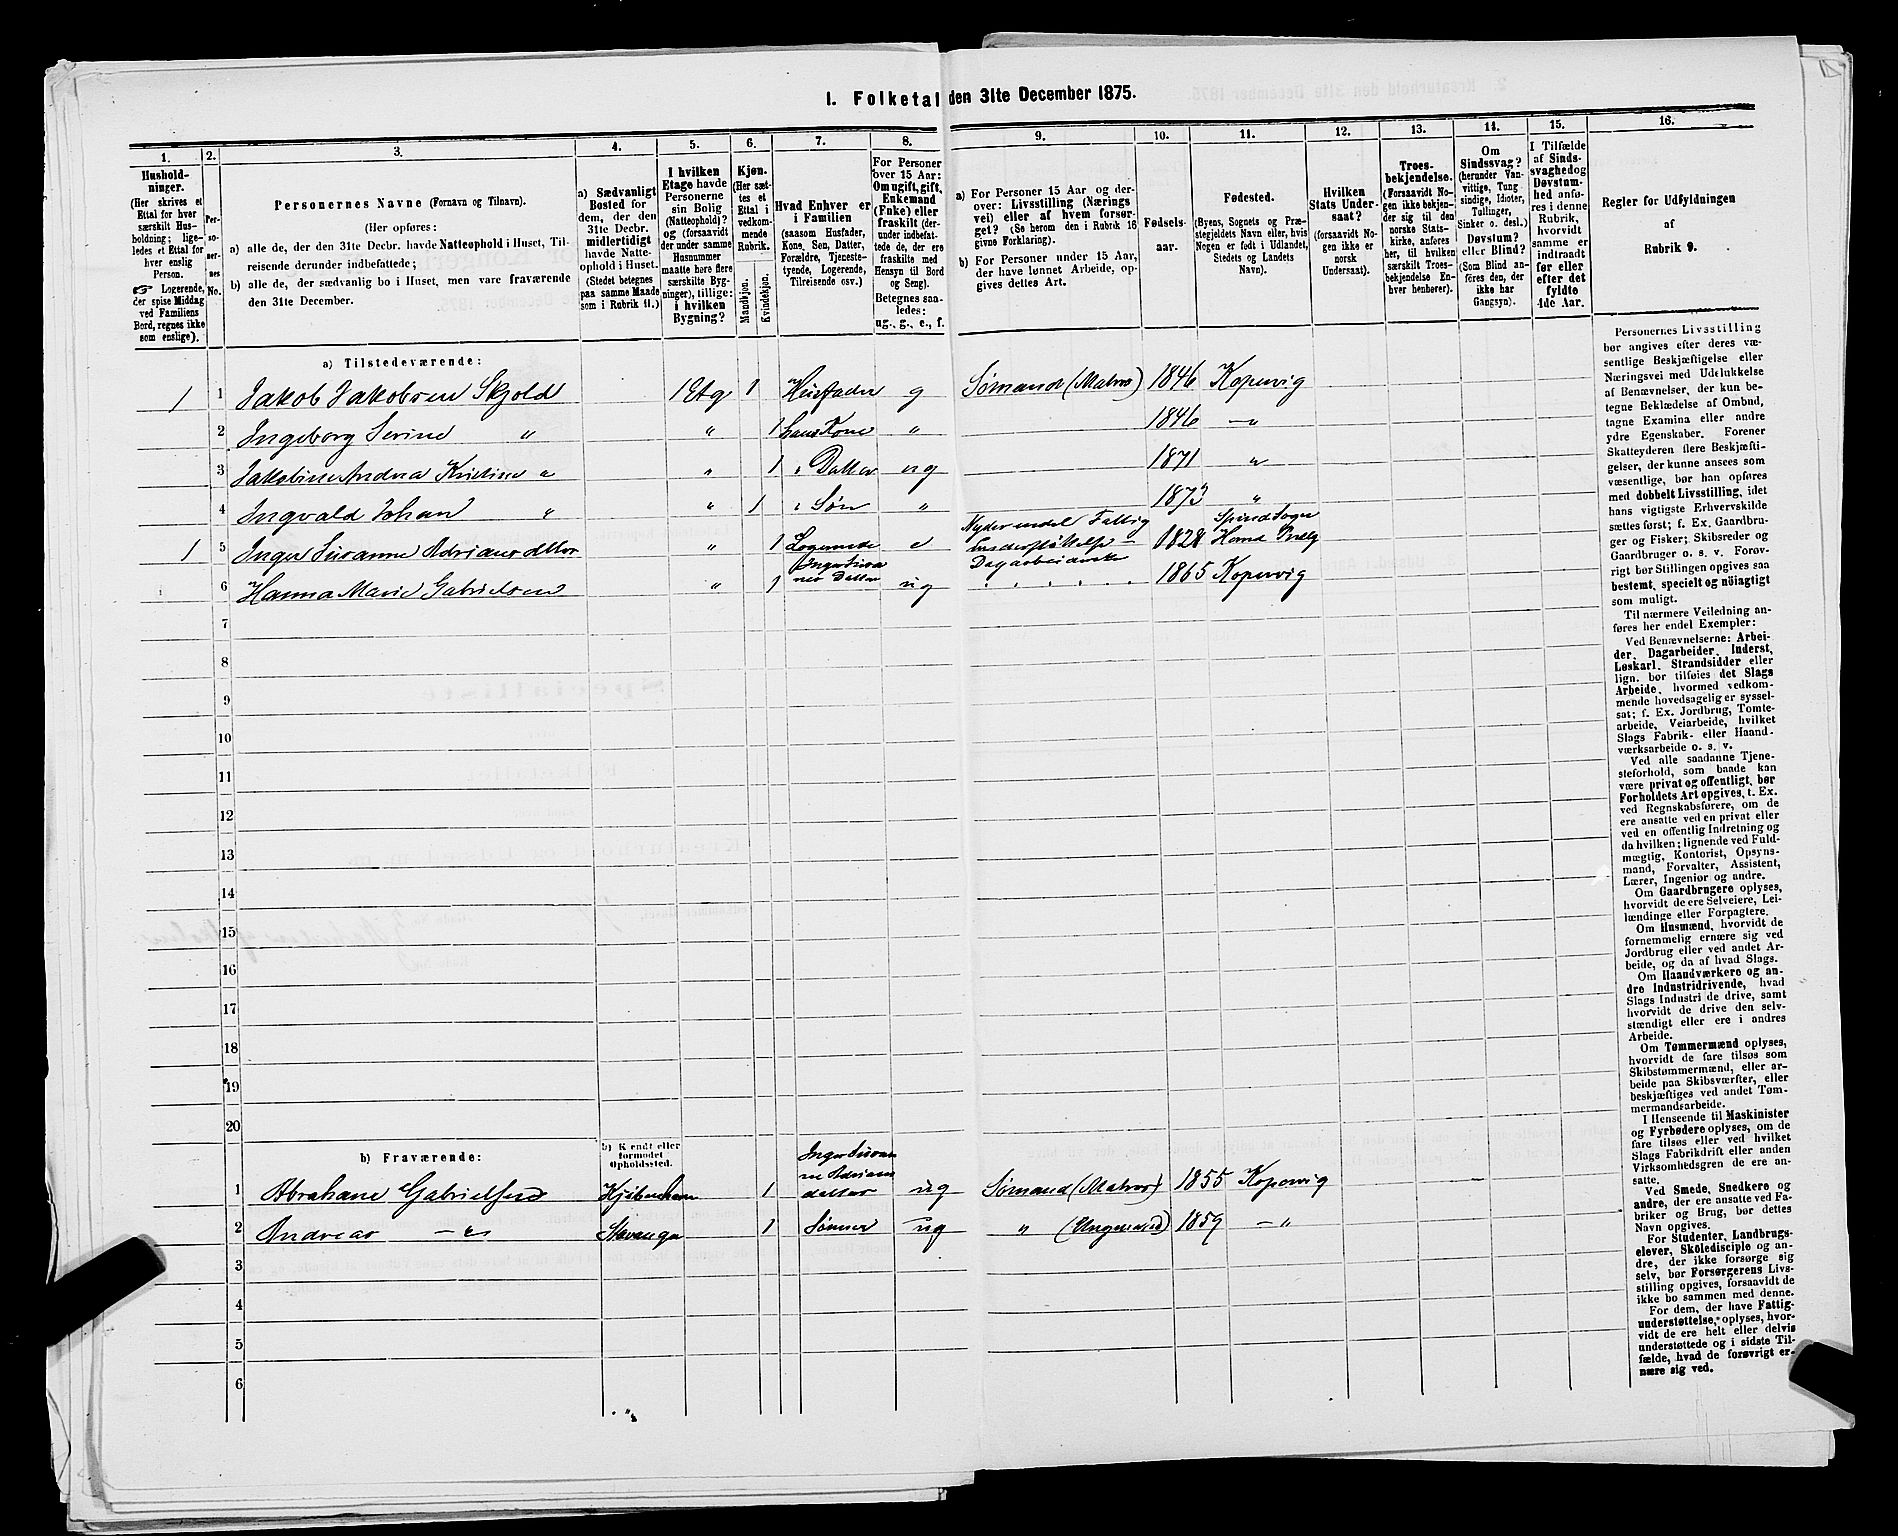 1. Folketal den 31te December 1875.
1.
2.
3.
4.
5.
6.
7.
8.
9.
10.
11.
12.
13.
14.
15.
16.
Hushold-
ninger.
(Her skrives et
Ettal for hver
særskilt Hus-
holdning; lige-
ledes et Ettal for
hver enslig
Person.
☞ Logerende,
der spise Middag
ved Familiens
Bord, regnes ikke
som enslige).
Per-
so-
ner-
nes
No.
Personernes Navne (Fornavn og Tilnavn).
(Her opføres:
a) alle de, der den 31te Decbr. havde Natteophold i Huset, Til-
reisende derunder indbefattede;
b) alle de, der sædvanlig bo i Huset, men vare fraværende
den 31te December.
a) Sædvanligt
Bosted for
dem, der den
31te Decbr.
midlertidigt
havde Natte-
ophold i Huset.
(Stedet betegnes
paa samme Maade
som i Rubrik 11.)
I hvilken
Etage havde
Personerne
sin Bolig
(Natteophold)?
og (forsaavidt
der under samme
Husnummer
maatte høre flere
særskilte Byg-
ninger), tillige:
i hvilken
Bygning?
Kjøn.
(Her sæt-
tes et
Ettal i
vedkom-
mende
Rubrik.)
Mandkjøn.
Kvindekjøn.
Hvad Enhver er
i Familien
(saasom Husfader,
Kone, Søn, Datter,
Forældre, Tjeneste-
tyende, Logerende,
Tilreisende osv.)
For Personer
over 15 Aar:
Om ugift, gift,
Enkemand
(Enke) eller
fraskilt (der-
under indbefat-
tede de, der ere
fraskilte med
Hensyn til Bord
og Seng).
Betegnes saa-
ledes:
ug., g., e., f.
a) For Personer 15 Aar og der-
over: Livsstilling (Nærings
vei) eller af hvem forsør-
get? (Se herom den i Rubrik 16
givne Forklaring).
b) For Personer under 15 Aar,
der have lønnet Arbeide, op-
gives dettes Art.
Fødsels-
aar.
Fødested.
(Byens, Sognets og Præ-
stegjeldets Navn eller, hvis
Nogen er født i Udlandet,
Stedets og Landets
Navn).
Hvilken
Stats Under-
saat?
(forsaavidt No-
gen ikke er
norsk
Undersaat).
Troes-
bekjendelse.
(Forsaavidt No-
gen ikke bekjen-
der sig til den
norske Stats-
kirke, anføres
her, til hvilken
særskilt Troes-
bekjendelse En-
hver henhører).
Om
Sindssvag?
(herunder Van-
vittige, Tung
sindige, Idioter,
Tullinger,
Sinker o. desl.)
Døvstum?
eller Blind?
(Som Blind an-
føres den, der
ikke har
Gangsyn).
I Tilfælde
af Sinds-
svaghed og
Døvstum-
hed anfø-
res i denne
Rubrik,
hvorvidt
samme er
indtraadt
før eller
efter det
fyldte
4de Aar.
Regler for Udfyldningen
af
Rubrik 9.
a) Tilstedeværende:
1 1 Jakob Jakobsen Skjold 1 Etg 1 Husfader g Sømand (Matros) 1846 Kopervig
2 Ingeborg Serine " " 1 hans Kone " 1846 — "
3 Jakobine Andrea Kristine " " 1 " Datter ug 1871 "
4 Ingvald Johan " " 1 " Søn " 1873 "
1 5 Inger Susanne Adriansdatter " 1 Logerende e Nyder endel Fattig
understøttelse – Dagarbeiderske 1828 Spind Sogn
6 Hanna Marie Gabrielsen " 1 Inger Susannes Datter ug " " " " 1865 Kopervig
7
8
9
10
11
12
13
14
15
16
17
18
19
20
b) Fraværende:
b) Kendt eller
formodet
Opholdssted.
1 Abrahane Gabrielsen Kjøbenhavn 1 Inger Susanne Adriansdatter ug Sømand (Matros) 1855 Kopervig
2 Andreas — " Stavanger 1 Sønner ug " (Ungmand) 1859 — "
3
4
5
6
Personernes Livsstilling
bør angives efter deres væ-
sentlige Beskjæftigelse eller
Næringsvei med Udelukkelse
af Benævnelser, der kun be-
tegne Beklædelse af Ombud,
tagne Examina eller andre
ydre Egenskaber. Forener
Skatteyderen flere Beskjæfti-
gelser, der kunne ansees som
væsentlige, bør han opføres
med dobbelt Livsstilling, idet
hans vigtigste Erhvervskilde
sættes først; f. Ex. Gaardbru-
ger og Fisker; Skibsreder og
Gaardbruger o. s. v. Forøv-
rigt bør Stillingen opgives saa
bestemt, specielt og nöiagtigt
som muligt.
Til nærmere Veiledning an-
føres her endel Exempler:
Ved Benævnelserne: Arbei-
der, Dagarbeider, Inderst,
Løskarl, Strandsidder eller
lign. bør tilføies det Slags
Arbeide, hvormed vedkom-
mende hovedsagelig er syssel-
sat; f. Ex. Jordbrug, Tomte-
arbeide, Veiarbeide, hvilket
Slags Fabrik- eller Haand-
værksarbeide o. s. v.
Ved alle saadanne Tjene-
steforhold, som baade kan
være privat og offentligt, bør
Forholdets Art opgives, t. Ex.
ved Regnskabsførere, om de
ere ansatte ved en privat eller
ved en offentlig Indretning og
da hvilken; lignende ved Fuld-
mægtig, Kontorist, Opsyns-
mand, Forvalter, Assistent,
Lærer, Ingeniør og andre.
Om Gaardbrugere oplyses,
hvorvidt de ere Selveiere, Lei-
lændinge eller Forpagtere.
Om Husmænd, hvorvidt de
fornemmelig ernære sig ved
Jordbrug eller ved andet Ar-
beide, og da af hvad Slags.
Om Haandværkere og an-
dre Industridrivende, hvad
Slags Industri de drive, samt
hvorvidt de drive den selv-
stændigt eller ere i andres
Arbeide.
Om Tømmermænd oplyses,
hvorvidt de fare tilsøs som
Skibstømmermænd, eller ar-
beide paa Skibsværfter, eller
beskjæftiges ved andet Tøm-
mermandsarbeide.
I Henseende til Maskinister
og Fyrbødere oplyses, om de
fare tilsøs eller ved hvilket
Slags Fabrikdrift eller anden
Virksomhedsgren de ere an-
satte.
Ved Smede, Snedkere og
andre, der ere ansatte ved Fa-
briker og Brug, bør dettes
Navn opgives.
For Studenter, Landbrugs-
elever, Skoledisciple og an-
dre, der ikke forsørge sig
selv, bør Forsørgerens Livs-
stilling opgives, forsaavidt de
ikke bo sammen med denne.
For dem, der have Fattig-
understøttelse, oplyses, hvor-
vidt de ere helt eller delvis
understøttede og i sidste Til-
fælde, hvad de forøvrigt er-
nære sig ved.